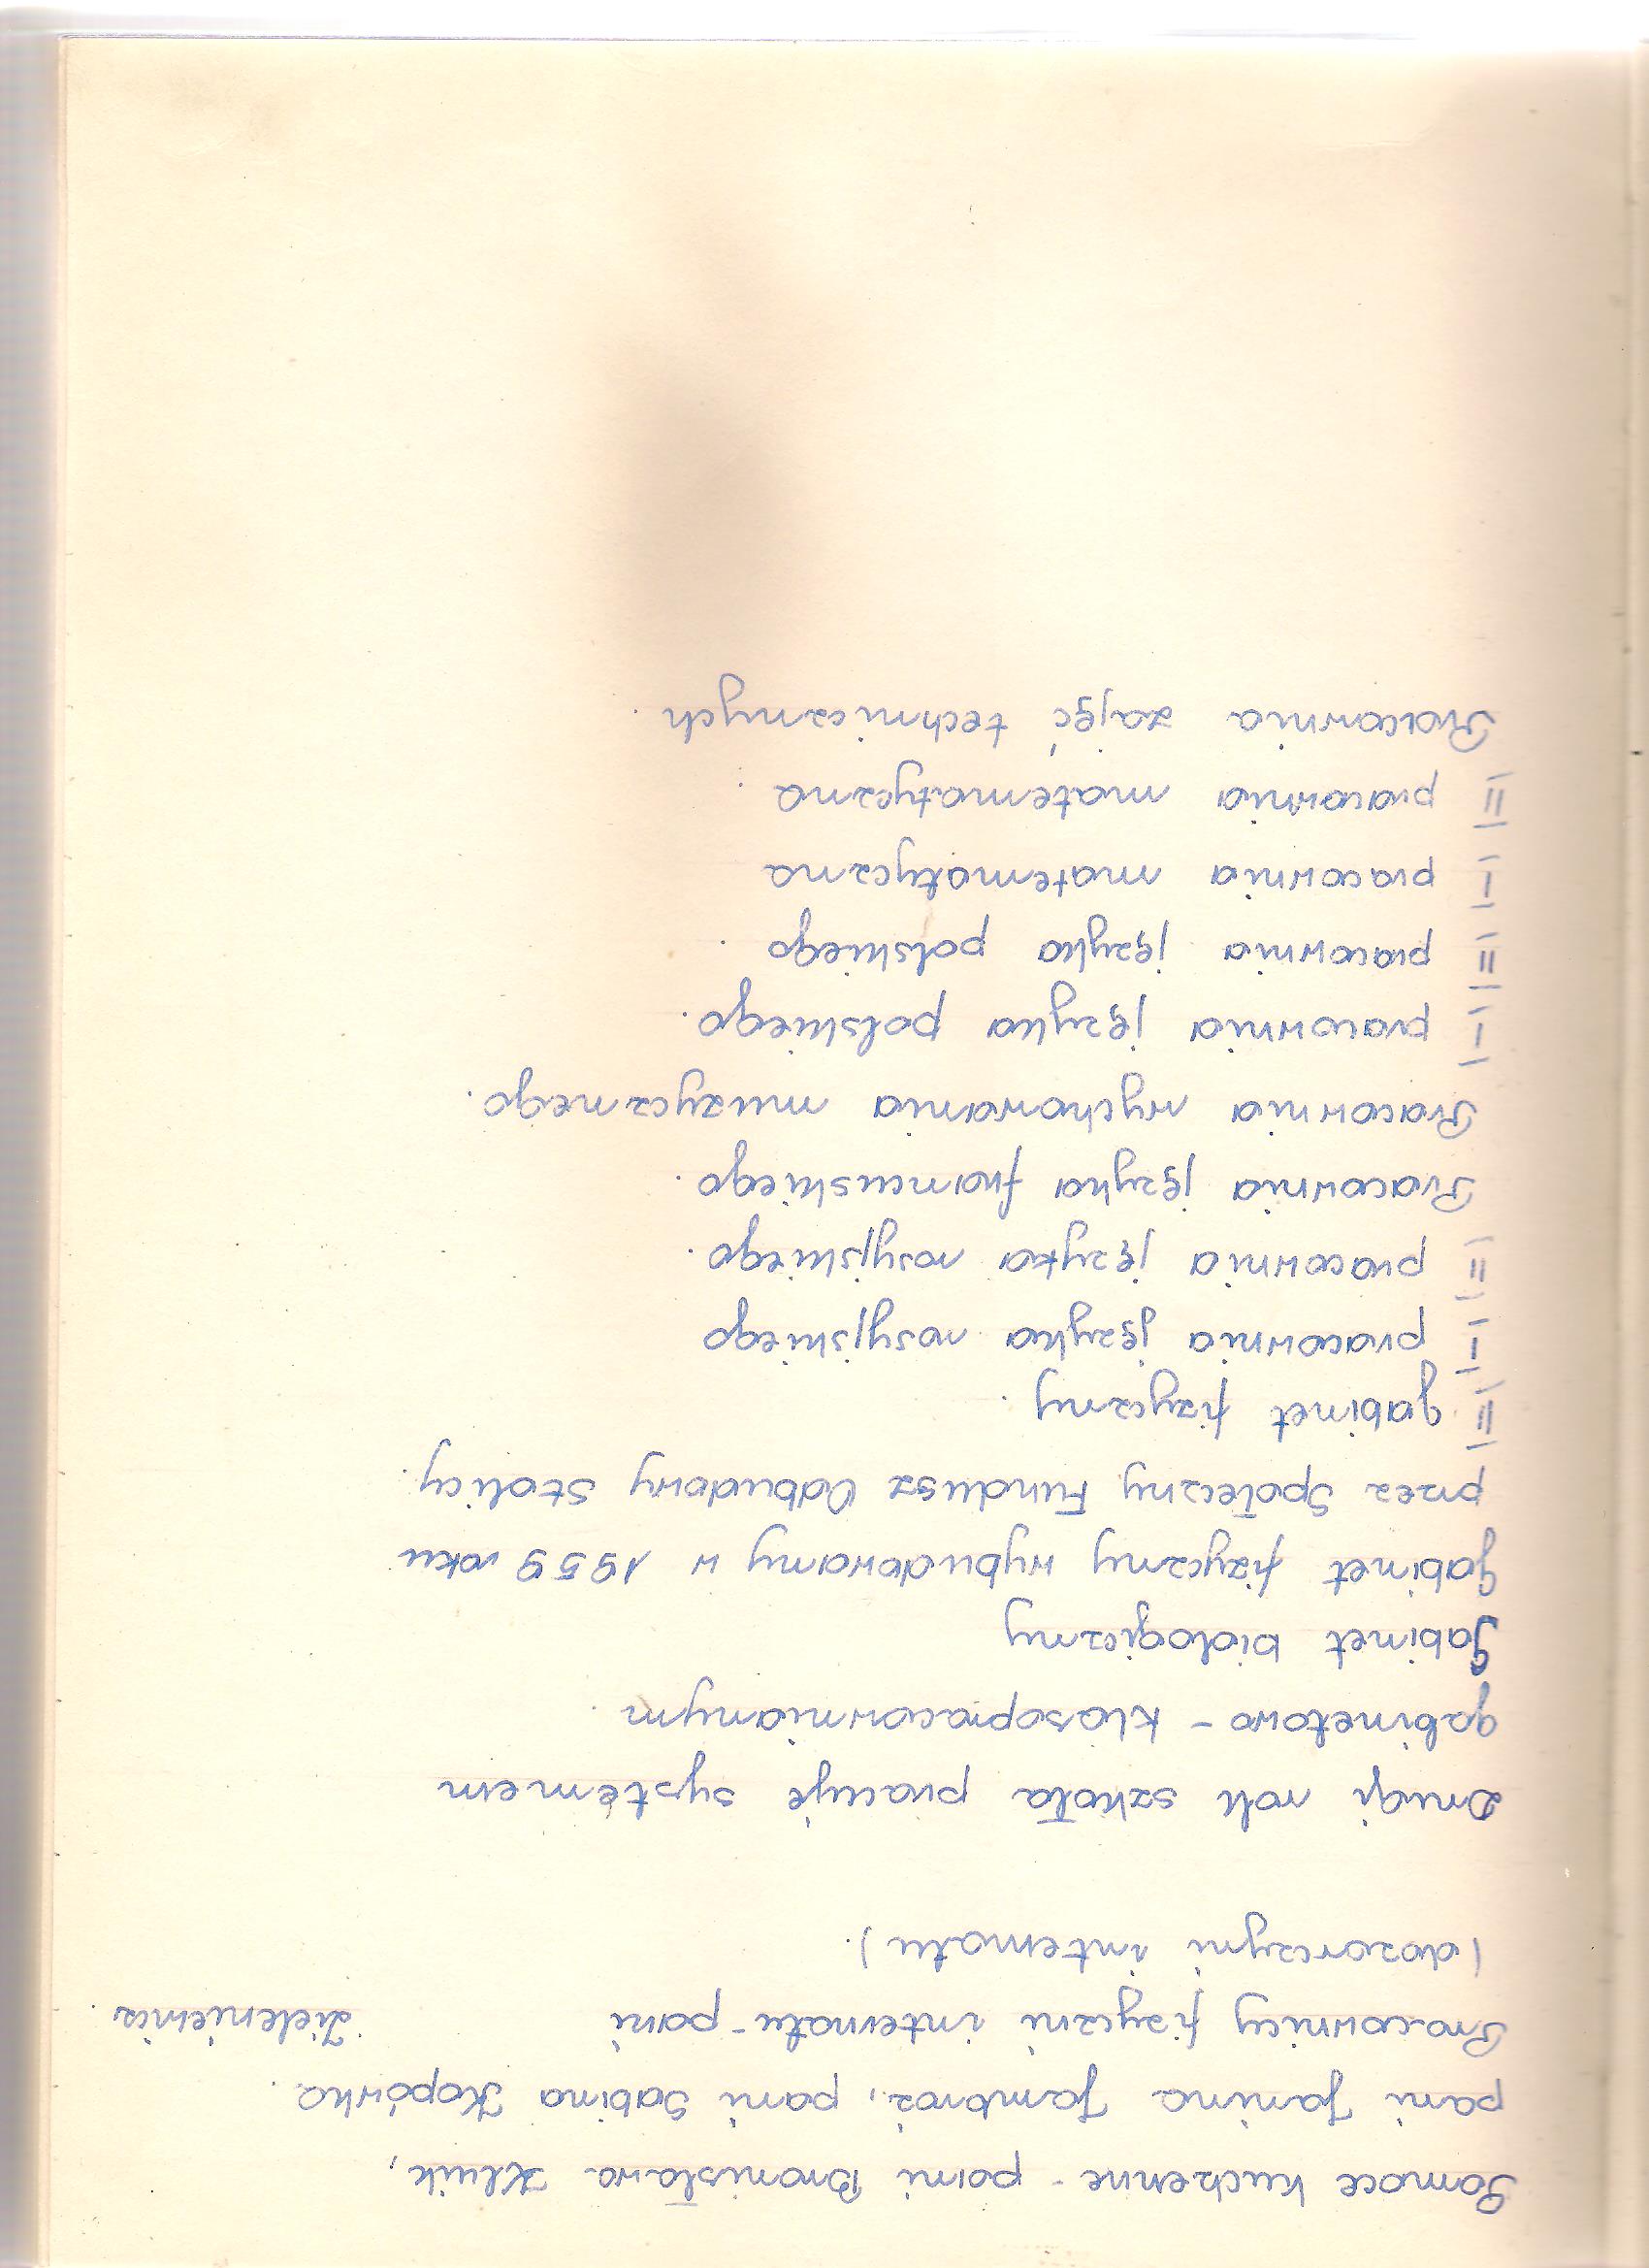 Pomoce kuchenne - pani Bronisława Kluik,
pani Janina Jambroż, pani Sabina Kopówka.
Pracownicy fizyczni internatu - pani Zieleniewicz.
(dozorczyni internatu).
Drugi rok szkoła pracuje systemem
gabinetowo - klasopracownianym.
Gabinet biologiczny
Gabinet fizyczny wybudowany w 1959 roku
przez Społeczny Fundusz Odbudowy Stolicy.
II gabinet fizyczny.
I pracownia języka rosyjskiego
II pracownia języka rosyjskiego.
Pracownia języka francuskiego.
Pracownia wychowania muzycznego.
I pracownia języka polskiego.
II pracownia języka polskiego.
I pracownia matematyczna
II pracownia matematyczna.
Pracownia zajęć technicznych.